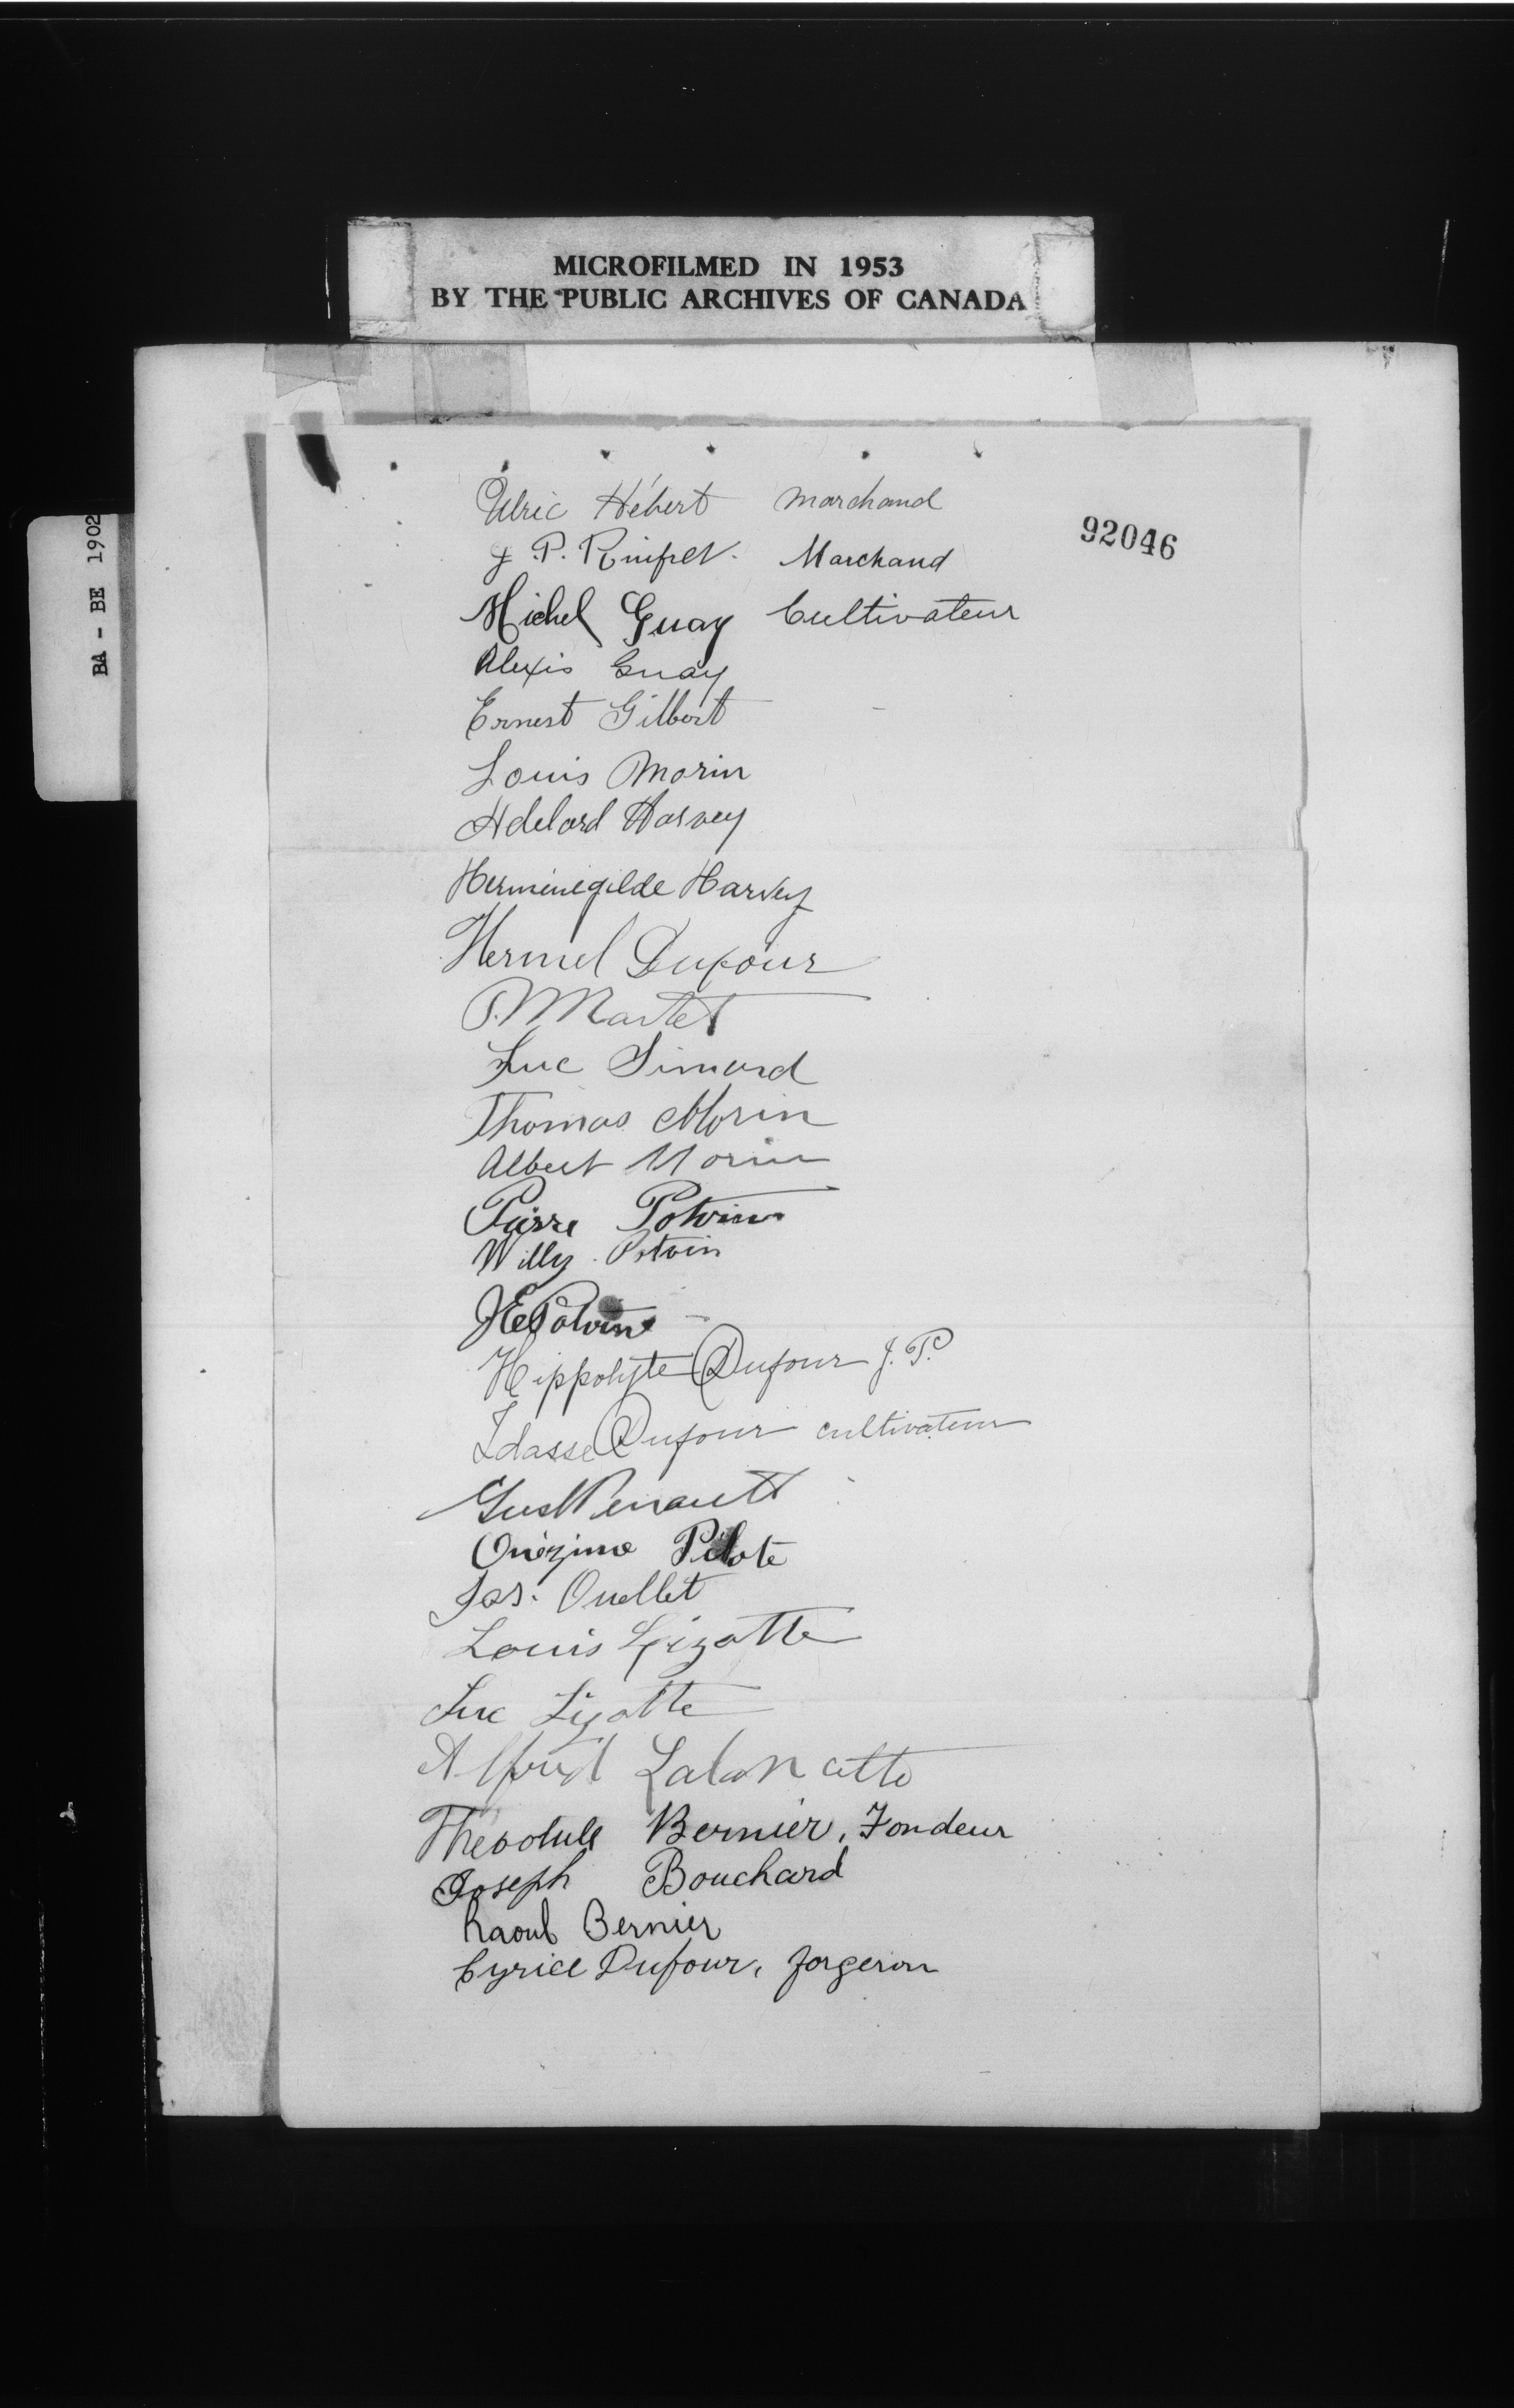 MICROFILMED IN 1953
BY THE PUBLIC ARCHIVES OF CANADA
BA - BE 1902
92046
Ulric Hébert Marchand
J. P. Marchand
Michel Guay Cultivateur
Alexis Guay
Ernest Gilbert
Louis Morin
Adelard Harvey
Herminegilde Harvey
Hermel Dufour
P. Martet
Luc Simard
Thomas Morin
Albert Morin
Pierre Potvin
Willy Potvin
J E Potvin
Hippolyte Dufour J. P.
Idasse Dufour cultivateur
Gust Renault
Onézime Pilote
Jos. Ouellet
Louis Lizotte
Luc Lizotte
Alfred Lalancette
Théotule Bernier, Fondeur
Joseph Bouchard
Raoul Bernier
Cyrice Dufour, forgeron